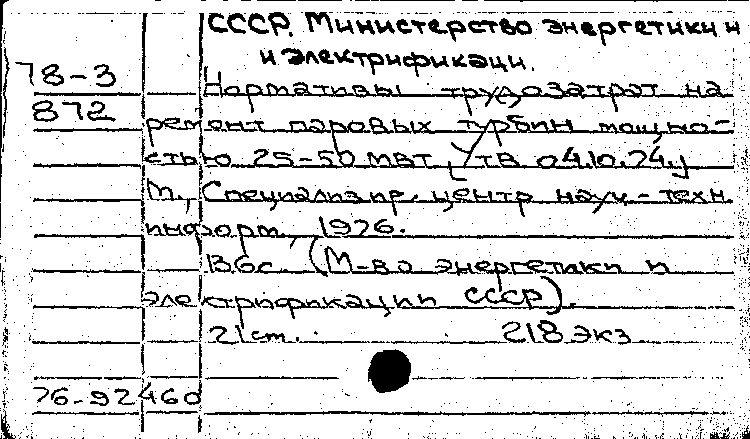 СССР. Министерство энергетики и
и электрификаци.
78-3
872
Нормативы трудозатрат на
ремонт паровых турбин мощно-
стью 25-50 мвт. [Утв 04.10.74.]
М., Специализир. центр науч.-техн.
информ., 1976.
136с. (М-во энергетики и
электрификации СССР).
21 см. 218 экз
76-92460